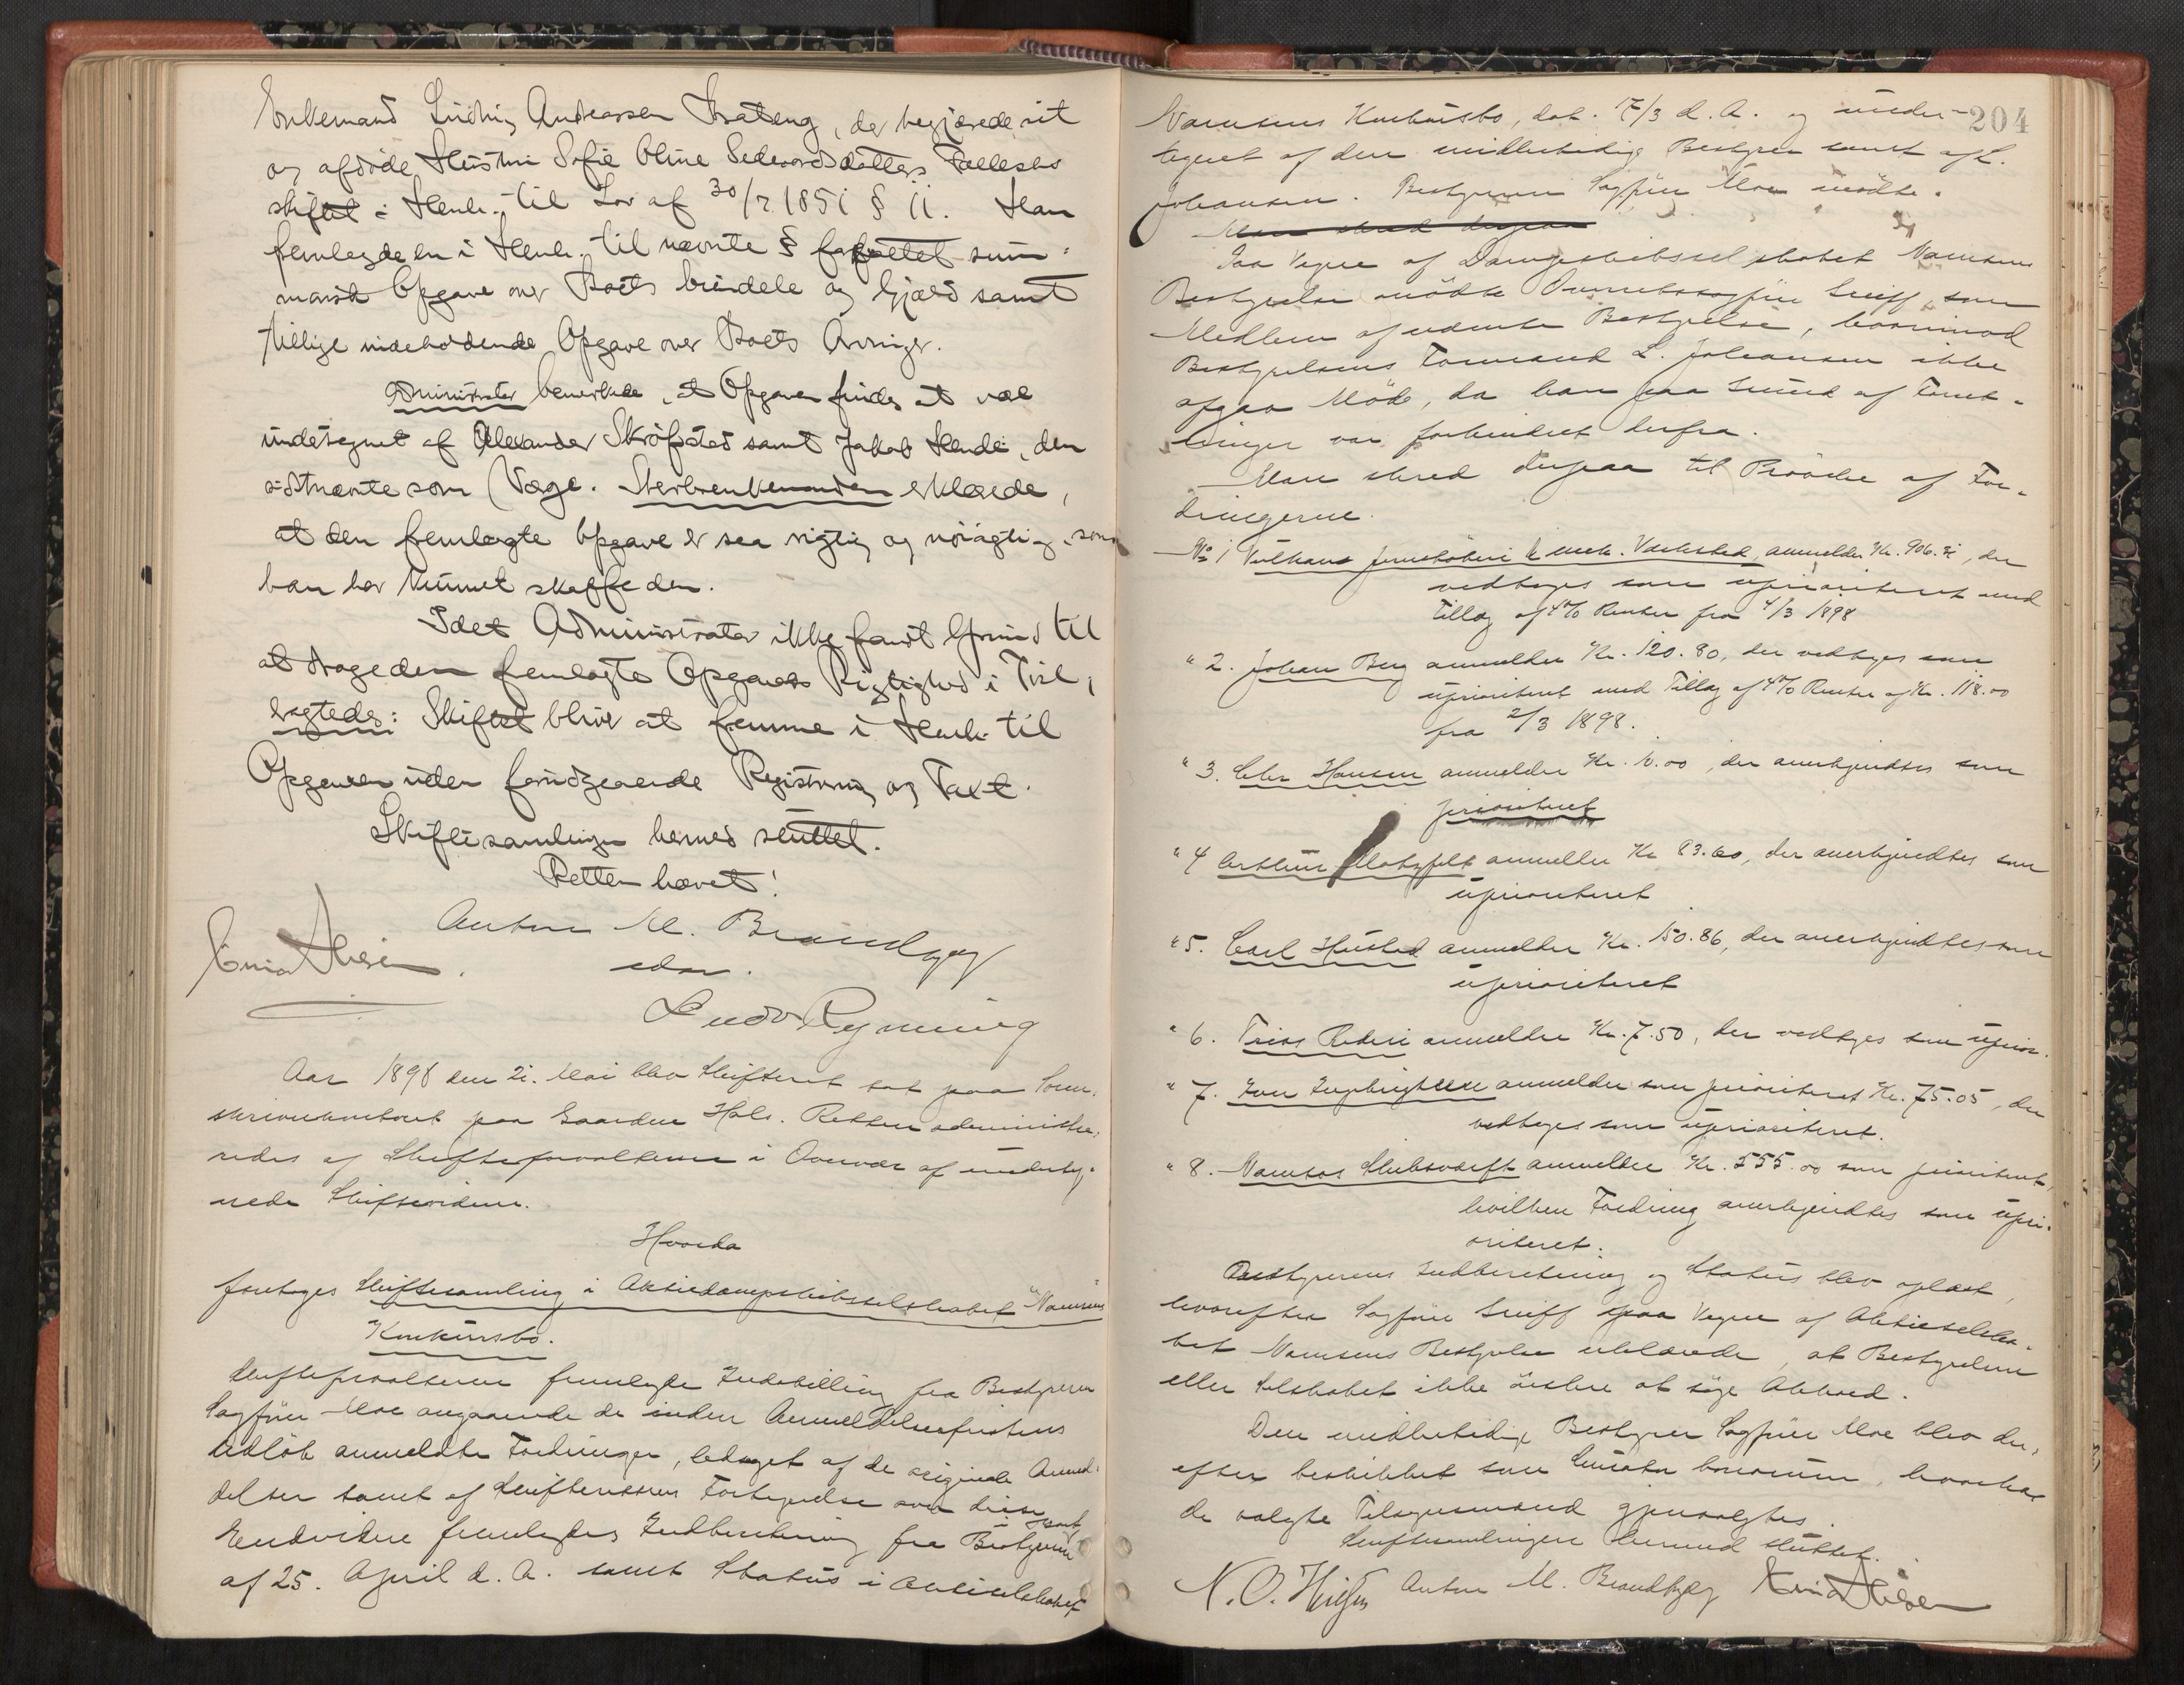 Enkemand Ludvig Andreassen Brateng, der begjærede sit
og afdøde Hustru Sofie Oline Sedevardsdatters Fællesbo
skiftet i Henh. til Lov af 30/7 1851 § 11. Han
fremlagde en i Henh. til nævnte § forfattet sum-
marisk Opgave over Boets Eiendele og Gjæld samt
tillige indeholdende Opgave over Boets Arvinger.
Administrator bemærkede, at Opgaven findes at være
undertegnet af Alexander Skrøfsted samt Jakob Hende, den
sidstnævnte som Værge. Sterboenkemanden erklærede,
at den fremlagte Opgave er saa rigtig og nøiagtig, som
han har kunnet skaffe den.
Idet Administrator ikke fandt Grund til
at drage den fremlagte Opgaves Rigtighed i Tvil,
vedtoges: Skiftet bliver at fremme i Henh. til
Opgaven uden forudgaaende Registrering og Taxt.
Skiftesamlingen hermed sluttet.
Retten hævet!
Anton M. Brandtzæg
edsv.
Ludv Rynning
Aar 1898 den 21. Mai blev Skifteret sat paa Soren-
skriverkontoret paa Gaarden Hals. Retten administre-
redes af Skifteforvalteren i Overvær af underteg-
nede Skiftevidner.
Hvorda
foretoges Skiftesamling i Aktiedampskibsselskabet "Namsens"
Konkursbo.
Skifteforvalteren fremlagde Indstilling fra Bestyreren
Sagfører Moe angaaende de inden Anmeldelsesfristens
Udløb anmeldte Fordringer, ledsaget af de originale Anmel-
delser samt af Skifterettens Fortegnelse over disse
samt
Endvidere fremlagdes Indberetning fra Bestyreren
af 25. April d. A. samt Status i Aktieselskabet
204
Namsens Konkursbo, dat. 17/3 d. A. og under-
tegnet af den midlertidige Bestyrer samt af L.
Johansen. Bestyreren Sagfører Moe mødte.
Man skred derpaa
Paa Vegne af Dampskibsselskabet Namsens
Bestyrelse mødte Overretssagfører Greiff, som
Medlem af nævnte Bestyrelse, hvorimod
Bestyrelsens Formand L. Johansen ikke
afgav Møde, da han paa Grund af Forret-
ninger var forhindret derfra.
Man skred derpaa til Prøvelse af For-
dringerne.
No 1 Vulkans Jernstøberi & mek. Værksted, anmelder Kr. 906.21, der
vedtoges som uprioriteret med
Tillæg af 4% Renter fra 4/3 1898
" 2. Johan Berg anmelder Kr. 120.80, der vedtoges som
uprioriteret med Tillæg af 4% Renter af Kr. 118.00
fra 2/3 1898.
" 3. Chr Hansen anmelder Kr. 10.00, der anerkjendtes som
prioriteret
" 4 Arthur Motzfeldt anmelder Kr 83.60, der anerkjendtes som
uprioriteret
" 5. Carl Hustad anmelder Kr. 150.86, der anerkjendtes som
uprioriteret
" 6. Trios Rederi anmelder Kr. 7.50, der vedtoges som uprior.
" 7. Iver Ingebrigtsen anmelder som prioriteret Kr. 75.05, der
vedtoges som uprioriteret.
" 8. Namsos Skibsværft anmelder Kr. 555.00 som prioriteret,
hvilken Fordring anerkjendtes som upri-
oriteret.
Bestyrerens Indberetning og Status blev oplæst,
hvorefter Sagfører Greiff paa Vegne af Aktieselska-
bet Namsens Bestyrelse erklærede, at Bestyrelsen
eller Selskabet ikke ønsker at søge Akkord.
Den midlertidige Bestyrer Sagfører Moe blev der-
efter beskikket som Curator bonorum, hvorhos
de valgte Tilsynsmænd gjenvalgtes.
Skiftesamlingen hermed sluttet.
Anton M. Brandtzæg